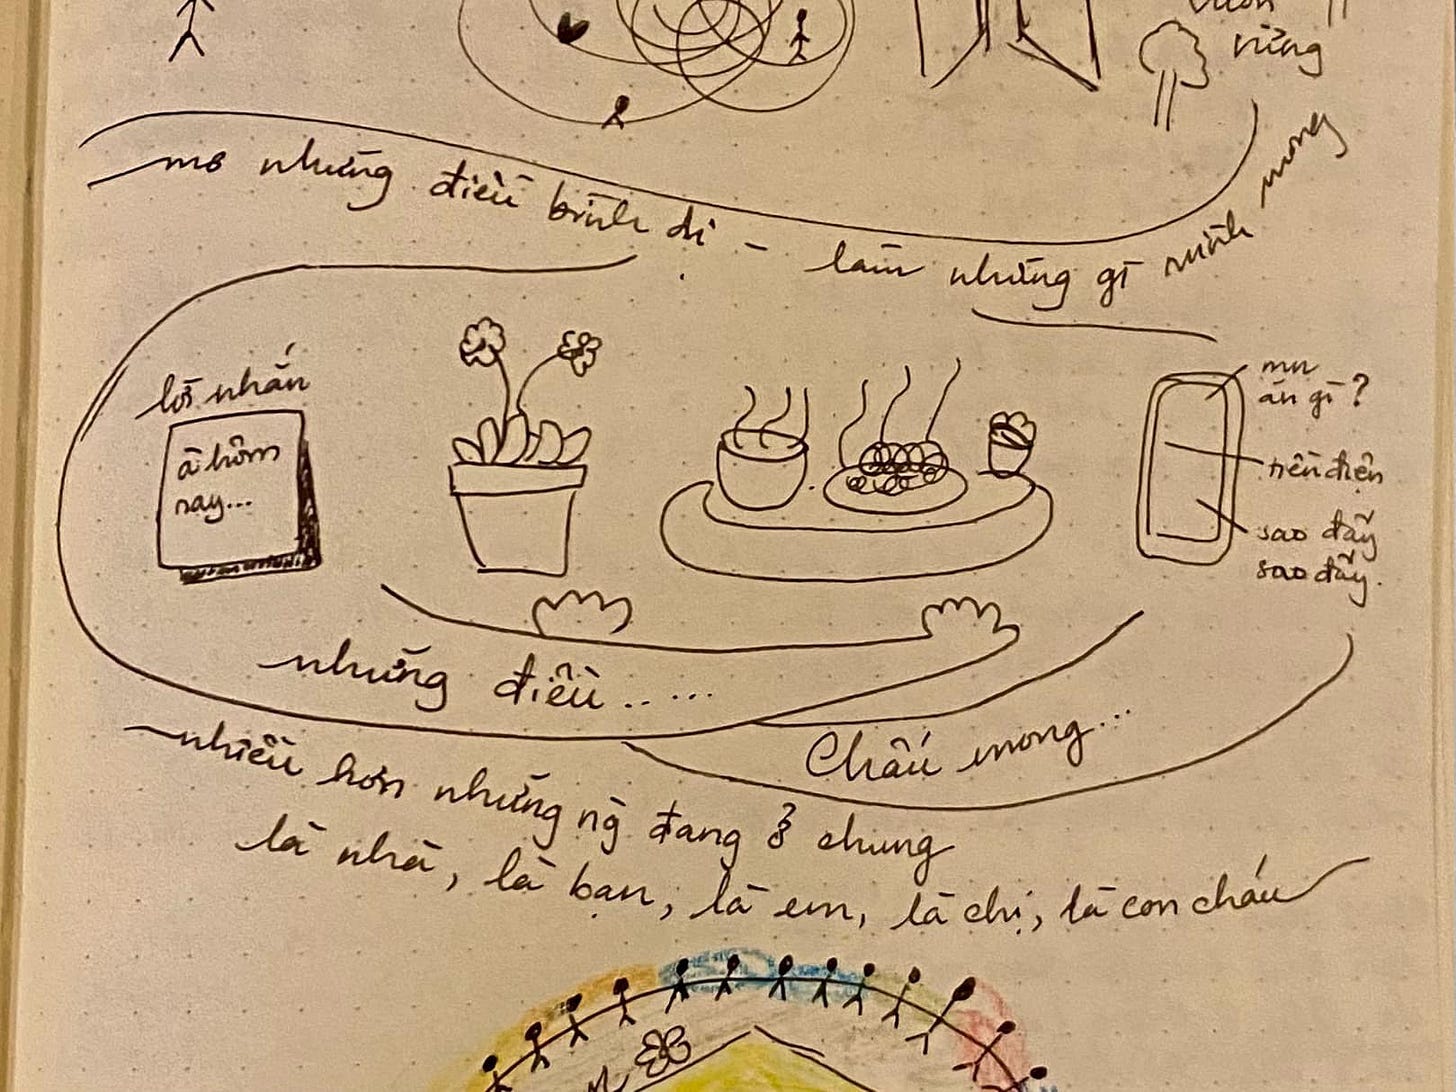 vườn
rừng
mơ những điều bình dị - làm những gì mình mong
lời nhắn
à hôm
nay...
mn
ăn gì?
tiền điện
sao đấy
sao đấy.
những điều......
Cháu mong...
nhiều hơn những ng̀ đang ở chung
là nhà, là bạn, là em, là chị, là con cháu